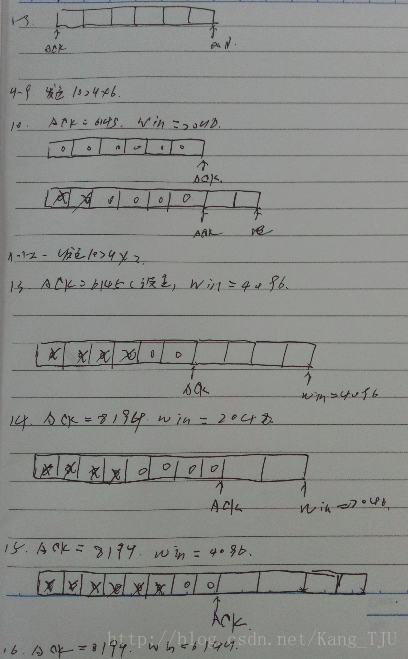 1-3
ACK
win
4-9 发送 1024×6.
10. ACK = 6145. win = 2048.
0 0 0 0 0 0
ACK
0 0 0 0
ACK
11-12 发送 1024×2
13. ACK = 6145 win = 4096.
0 0
ACK
win=4096
14. ACK = 8194 win = 2048
0 0 0 0
ACK
win=2048
15. ACK = 8194. win = 4096.
0 0
ACK
http://blog.csdn.net/Kang_TJU
16. ACK = 8194. win = 6144.